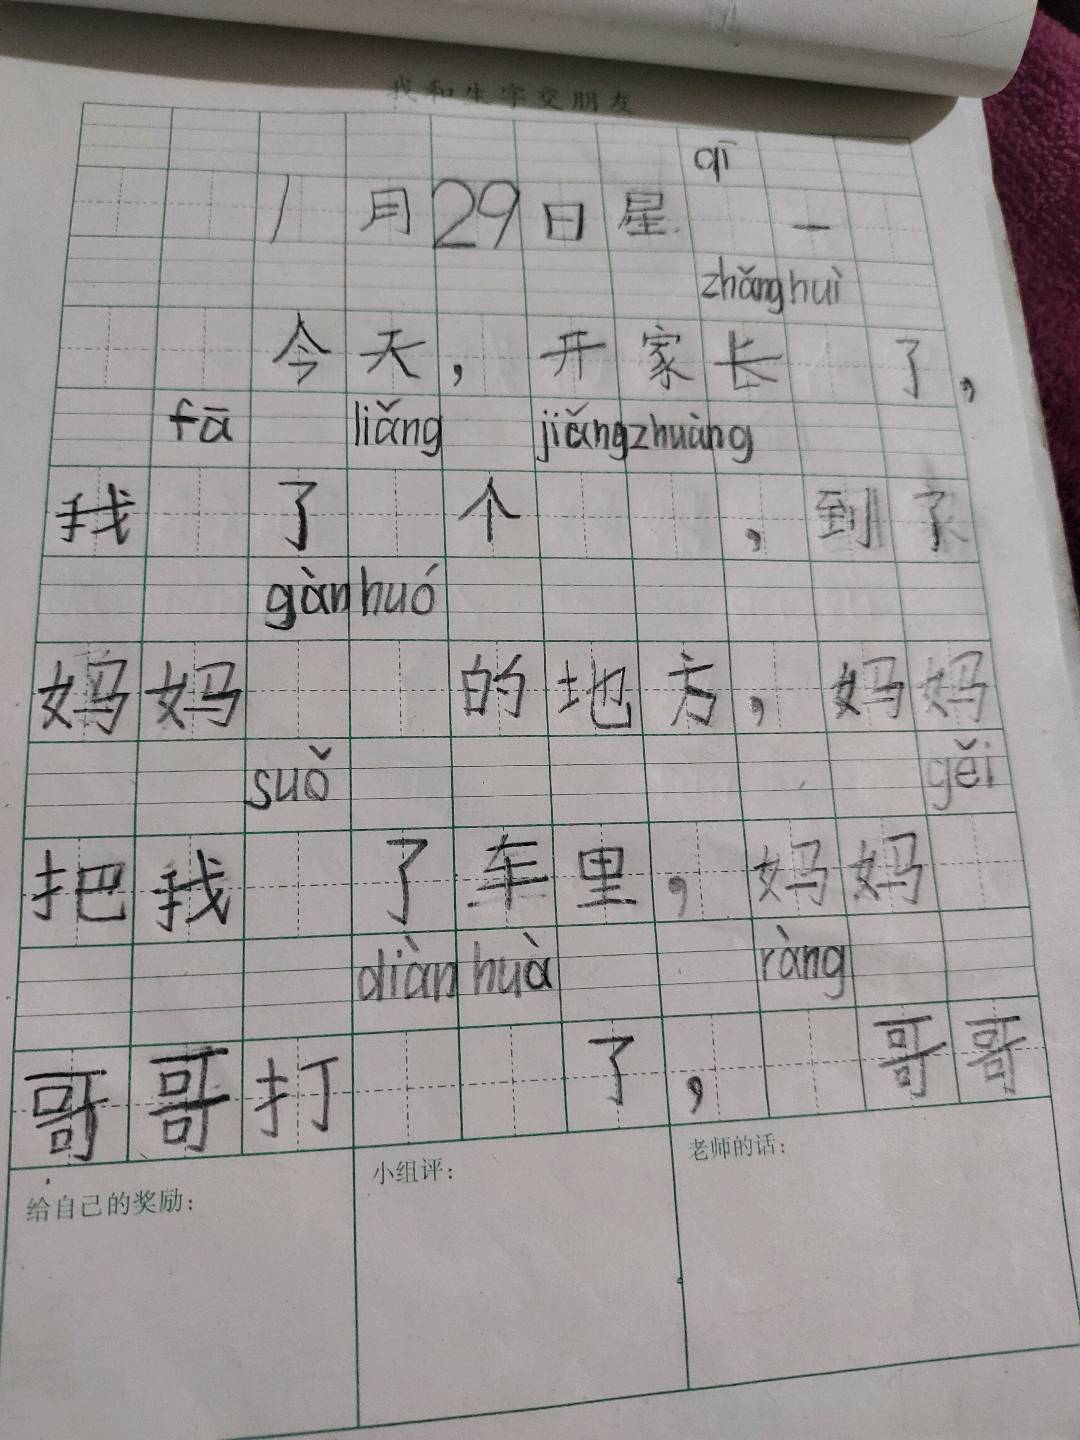 我和生字交朋友
qī
1月29日星 一
zhǎng huì
今天，开家长 了，
fā liǎng jiǎng zhuàng
我 了 个 ，到了
gàn huó
妈妈 的地方，妈妈
suǒ gěi
把我 了车里，妈妈
diàn huà ràng
哥哥打 了， 哥哥
给自己的奖励：
小组评：
老师的话：